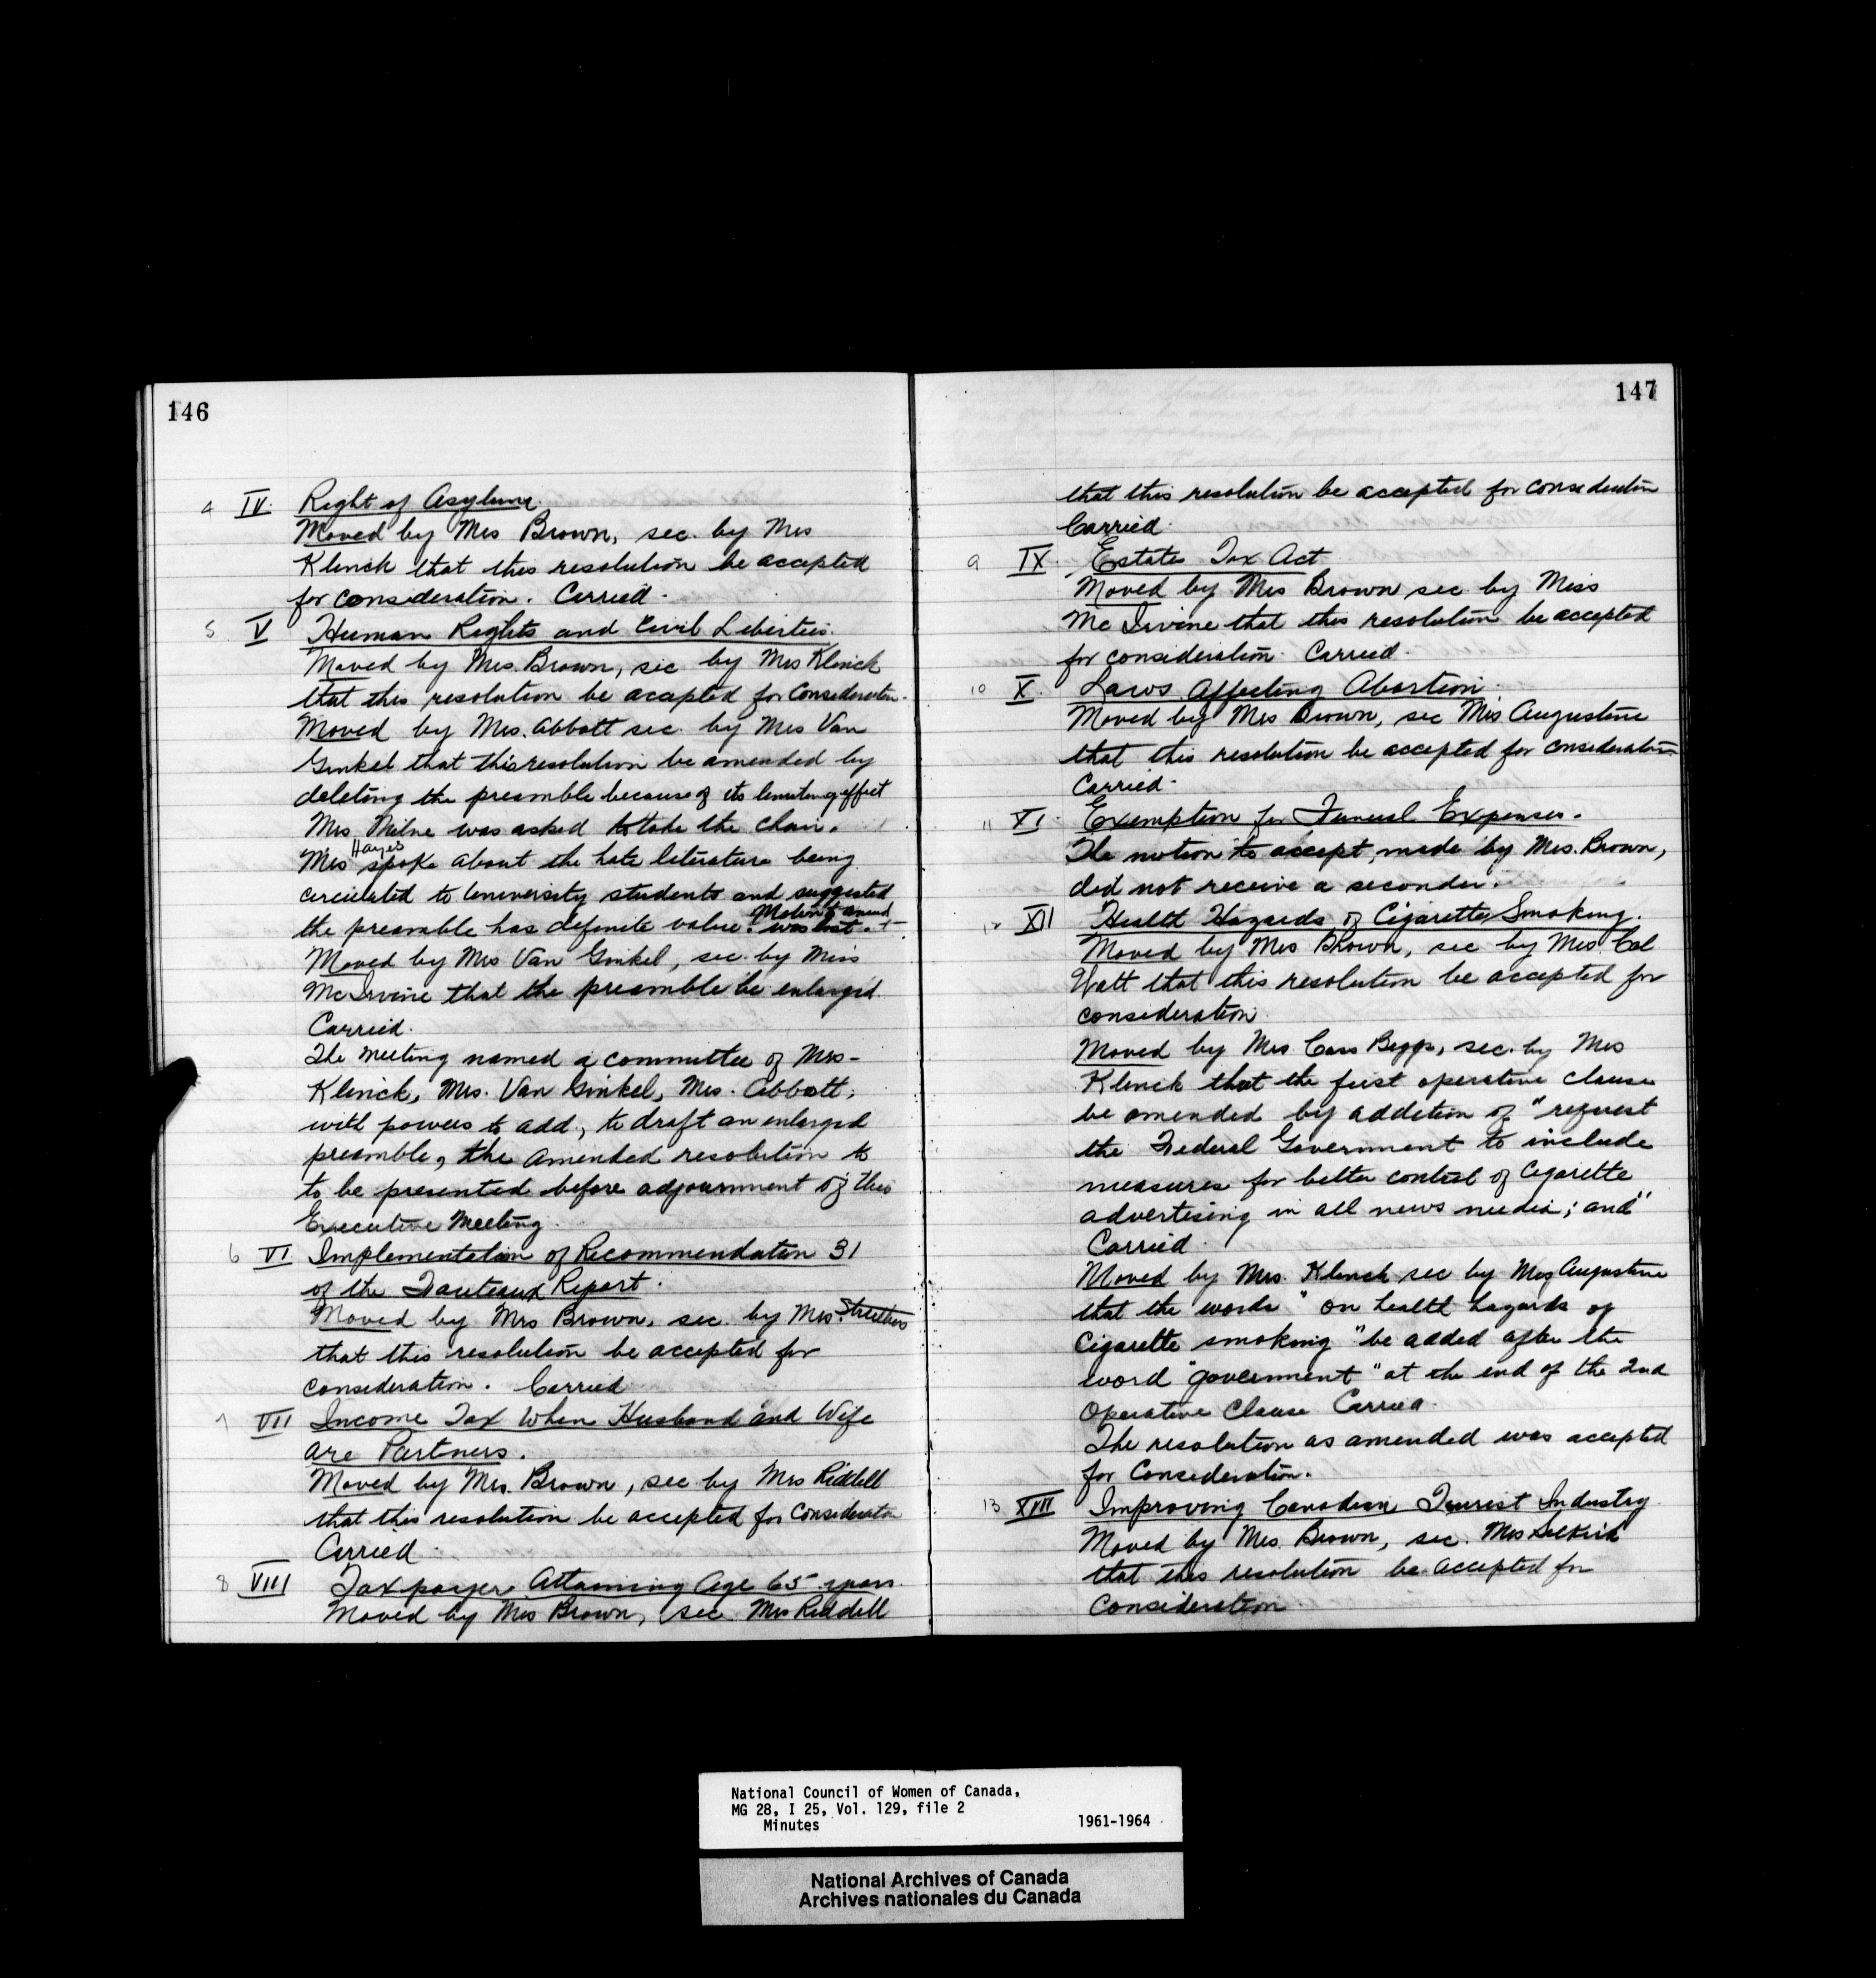 146
4 IV. Right of Asylum.
Moved by Mrs Brown, sec. by Mrs
Klenck that this resolution be accepted
for consideration. Carried.
5 V Human Rights and Civil Liberties.
Moved by Mrs. Brown, sec by Mrs Klenck
that this resolution be accepted for Consideration.
Moved by Mrs. Abbott sec. by Mrs Van
Ginkel that this resolution be amended by
deleting the preamble because of its limiting effect
Mrs. Milne was asked to take the chair.
Mrs Hayes spoke about the hate literature being
circulated to University students and suggested
the preamble has definite value. Motion to amend was lost.
Moved by Mrs Van Ginkel, sec. by Miss
McIrvine that the preamble be enlarged.
Carried.
The meeting named a committee of Mrs-
Klenck, Mrs. Van Ginkel, Mrs. Abbott,
with powers to add, to draft an enlarged
preamble, the amended resolution to
to be presented before adjournment of this
Executive Meeting.
6 VI Implementation of Recommendation 31
of the Fauteaux Report.
Moved by Mrs Brown, sec. by Mrs.
that this resolution be accepted for
consideration. Carried
7 VII Income Tax when Husband and Wife
are Partners.
Moved by Mrs. Brown, sec by Mrs Riddell
that this resolution be accepted for Consideration
Carried.
8 VIII Taxpayer Attaining Age 65 years.
Moved by Mrs Brown, sec. Mrs Riddell
147
that this resolution be accepted for consideration
Carried.
9 IX. Estates Tax Act
Moved by Mrs Brown sec by Miss
McIrvine that this resolution be accepted
for consideration. Carried.
10 X. Laws Affecting Abortion.
Moved by Mrs Brown, sec Mrs Augustine
that this resolution be accepted for consideration
Carried.
11 XI. Exemption for Funeral Expenses.
The motion to accept, made by Mrs. Brown,
did not receive a seconder.
12 XII Health Hazards of Cigarette Smoking.
Moved by Mrs Brown, sec by Mrs. Cal
Watt that this resolution be accepted for
consideration.
Moved by Mrs Cass Beggs, sec. by Mrs
Klenck that the first operative clause
be amended by addition of "request
the Federal Government to include
measures for better control of Cigarette
advertising in all news media; and"
Carried.
Moved by Mrs. Klenck sec by Mrs Augustine
that the words "on health hazards of
Cigarette smoking" be added after the
word "government" at the end of the 2nd
Operative Clause Carried.
The resolution as amended was accepted
for Consideration.
13 XIII Improving Canadian Tourist Industry.
Moved by Mrs. Brown, sec. Mrs Selkirk
that this resolution be accepted for
Consideration
National Council of Women of Canada,
MG 28, I 25, Vol. 129, file 2
Minutes 1961-1964
National Archives of Canada
Archives nationales du Canada